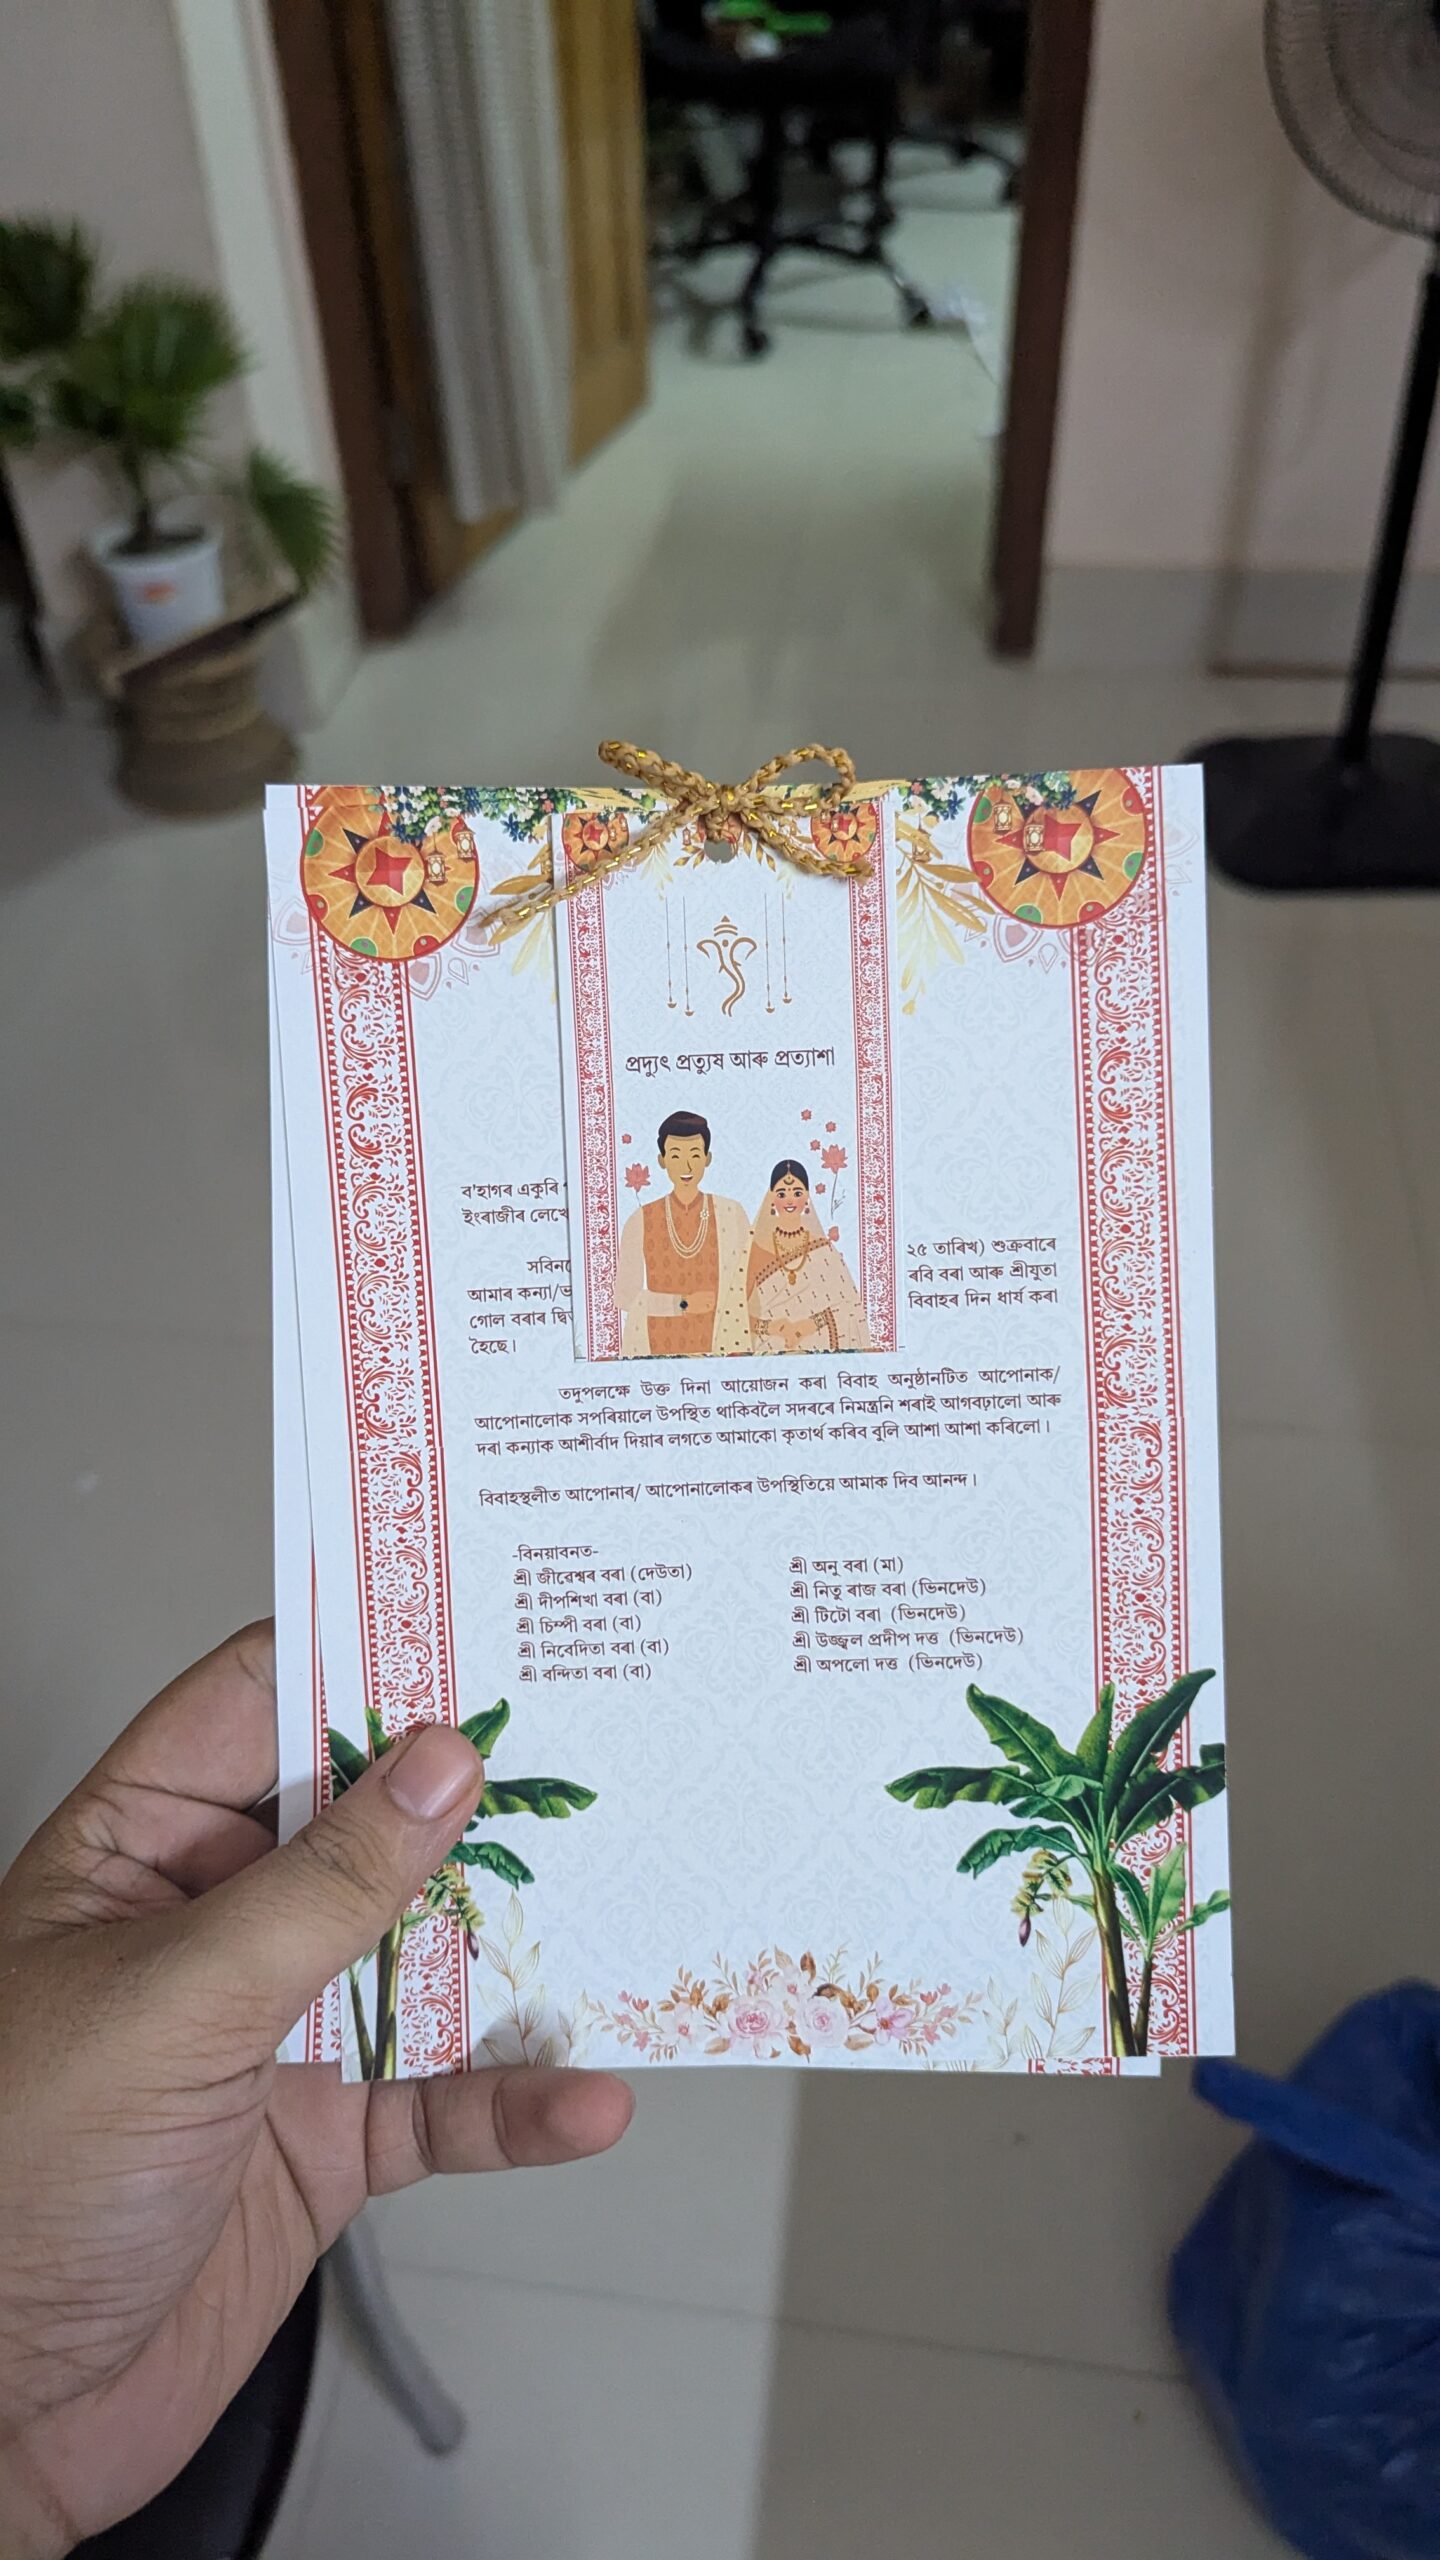 প্ৰদ্যুৎ প্ৰত্যুষ আৰু প্ৰত্যাশা
ব'হাগৰ একুৰি
ইংৰাজীৰ
২৫ তাৰিখ) শুক্ৰবাৰে
আমাৰ কন্যা/
ৰবি বৰা আৰু শ্ৰীযুতা
গোল বৰাৰ
বিবাহৰ দিন ধাৰ্য কৰা
হৈছে।
তদুপলক্ষে উক্ত দিনা আয়োজন কৰা বিবাহ অনুষ্ঠানটিত আপোনাক/
আপোনালোক সপৰিয়ালে উপস্থিত থাকিবলৈ সদৰৰে নিমন্ত্ৰনি শৰাই আগবঢ়ালো আৰু
দৰা কন্যাক আশীৰ্বাদ দিয়াৰ লগতে আমাকো কৃতাৰ্থ কৰিব বুলি আশা আশা কৰিলো।
বিবাহস্থলীত আপোনাৰ/ আপোনালোকৰ উপস্থিতিয়ে আমাক দিব আনন্দ।
-বিনয়াবনত-
শ্ৰী জীৱেশ্বৰ বৰা (দেউতা)
শ্ৰী দীপশিখা বৰা (বা)
শ্ৰী চিম্পী বৰা (বা)
শ্ৰী নিবেদিতা বৰা (বা)
শ্ৰী বন্দিতা বৰা (বা)
শ্ৰী অনু বৰা (মা)
শ্ৰী নিতু ৰাজ বৰা (ভিনদেউ)
শ্ৰী টিটো বৰা (ভিনদেউ)
শ্ৰী উজ্জ্বল প্ৰদীপ দত্ত (ভিনদেউ)
শ্ৰী অপলো দত্ত (ভিনদেউ)